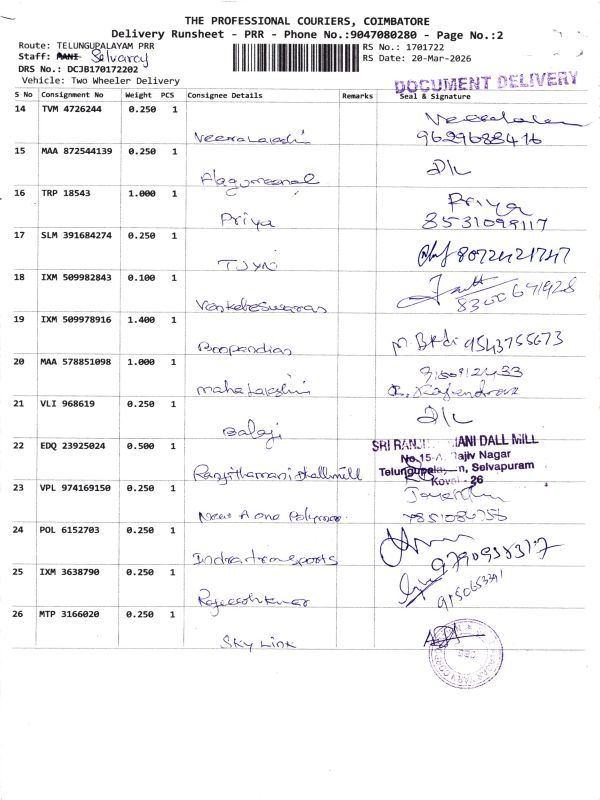 THE PROFESSIONAL COURIERS, COIMBATORE
Delivery Runsheet - PRR - Phone No.:9047080280 - Page No.:2
Route: TELUNGUPALAYAM PRR RS No.: 1701722
Staff: MANI Selvaraj RS Date: 20-Mar-2026
DRS No.: DCJB170172202
Vehicle: Two Wheeler Delivery
DOCUMENT DELIVERY
S No Consignment No Weight PCS Consignee Details Remarks Seal & Signature
14 TVM 4726244 0.250 1
Veeralakshi 9629688416
15 MAA 872544139 0.250 1
D/L
Alagumeenal
16 TRP 18543 1.000 1 Priya
Priya 8531099117
17 SLM 391684274 0.250 1
8072421747
18 IXM 509982843 0.100 1
Venkateswaran 8300671928
19 IXM 509978916 1.400 1
9543755673
Boopandian
20 MAA 578851098 1.000 1 9150912433
mahalakshmi R. Rajendran
21 VLI 968619 0.250 1 D/L
Balaji
22 EDQ 23925024 0.500 1 SRI RANJI IANI DALL MILL
No.15-A, Rajiv Nagar
Telungupala n, Selvapuram
Ranjithamani dhall mill Kovai - 26
23 VPL 974169150 0.250 1
New A one Polymer
24 POL 6152703 0.250 1
Indra transports 9790938317
25 IXM 3638790 0.250 1
Rajeeshkumar 9150653391
26 MTP 3166020 0.250 1
SKY LINK